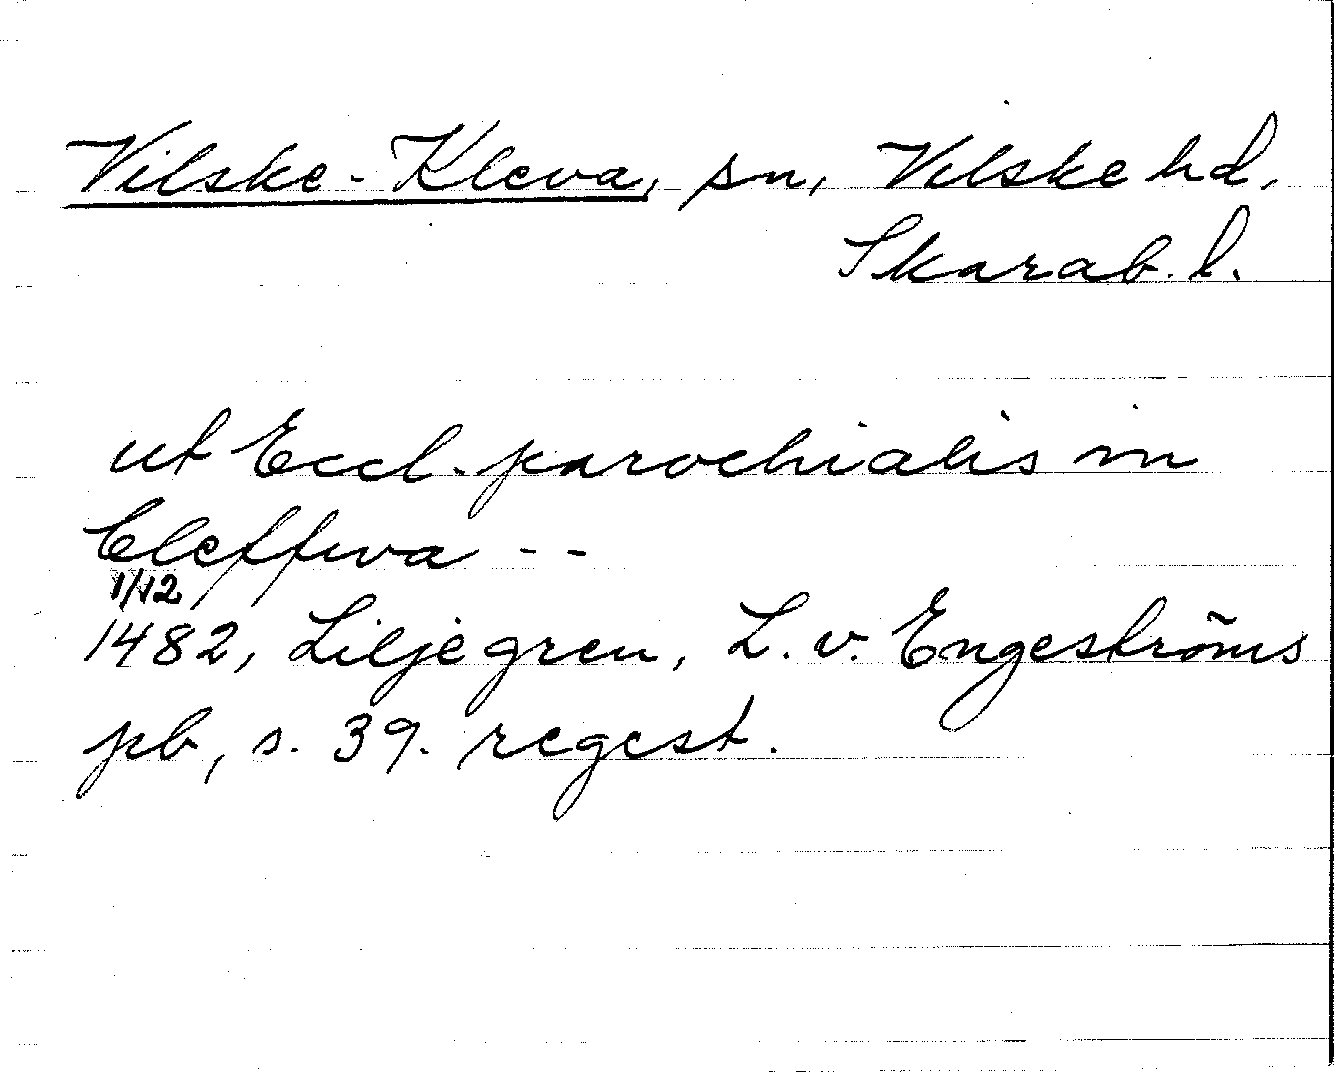 Vilske-Kleva, sn, Vilske hd,
Skarab. l.
ut Eccl. parochialis in
Cleffwa --
1/12
1482, Liljegren, L. v. Engeströms
pb, s. 39. regest.